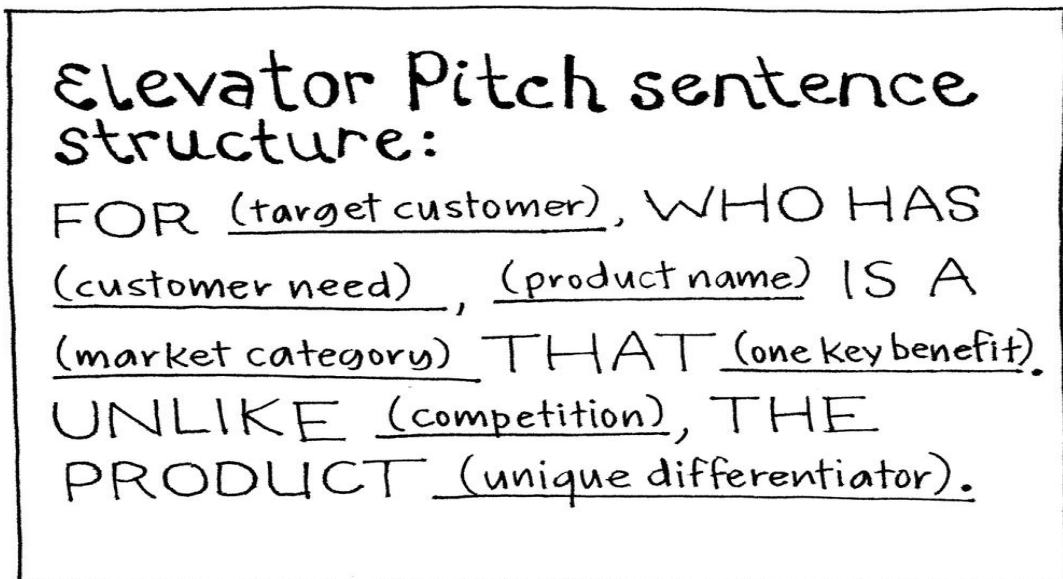 Elevator Pitch sentence
structure:
FOR (target customer), WHO HAS
(customer need), (product name) IS A
(market category) THAT (one key benefit).
UNLIKE (competition), THE
PRODUCT (unique differentiator).